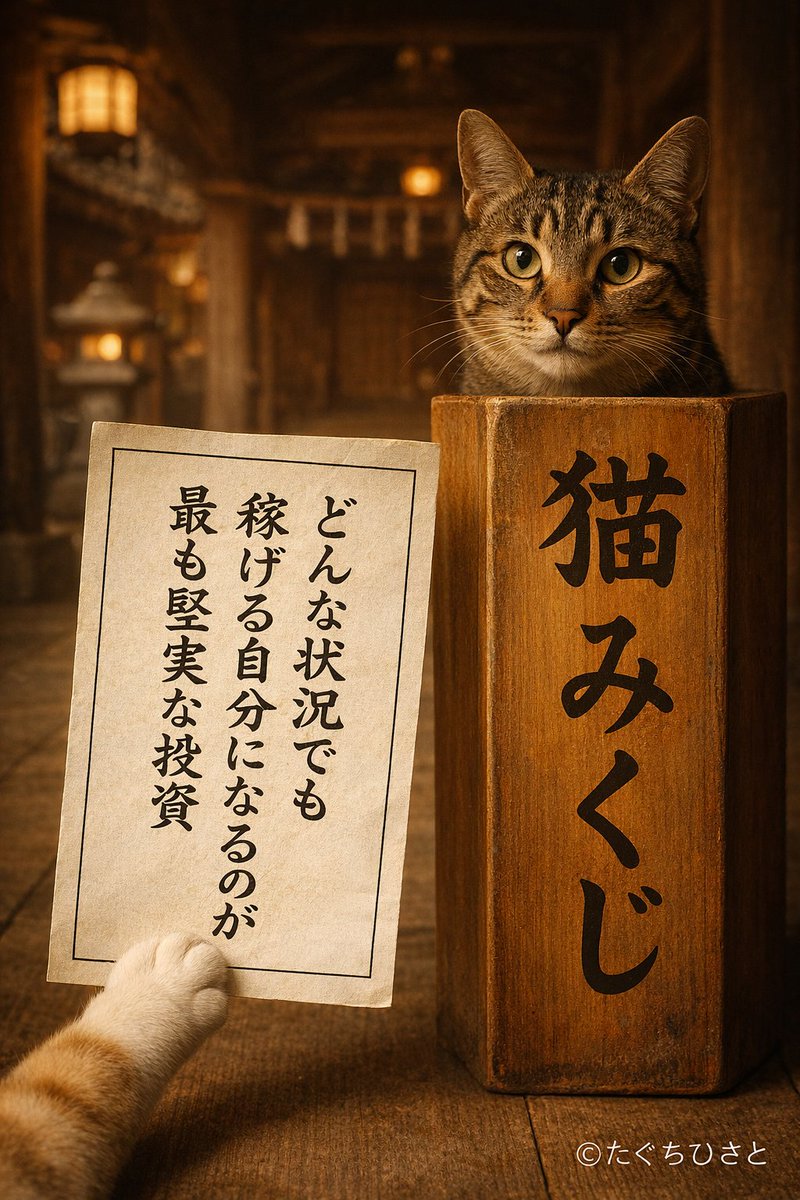 どんな状況でも
稼げる自分になるのが
最も堅実な投資
猫みくじ
©たぐちひさと